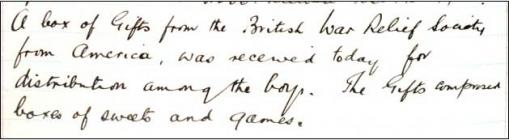 A box of Gifts from the British War Relief Society
from America, was received today for
distribution among the boys. The Gifts comprised
boxes of sweets and games.